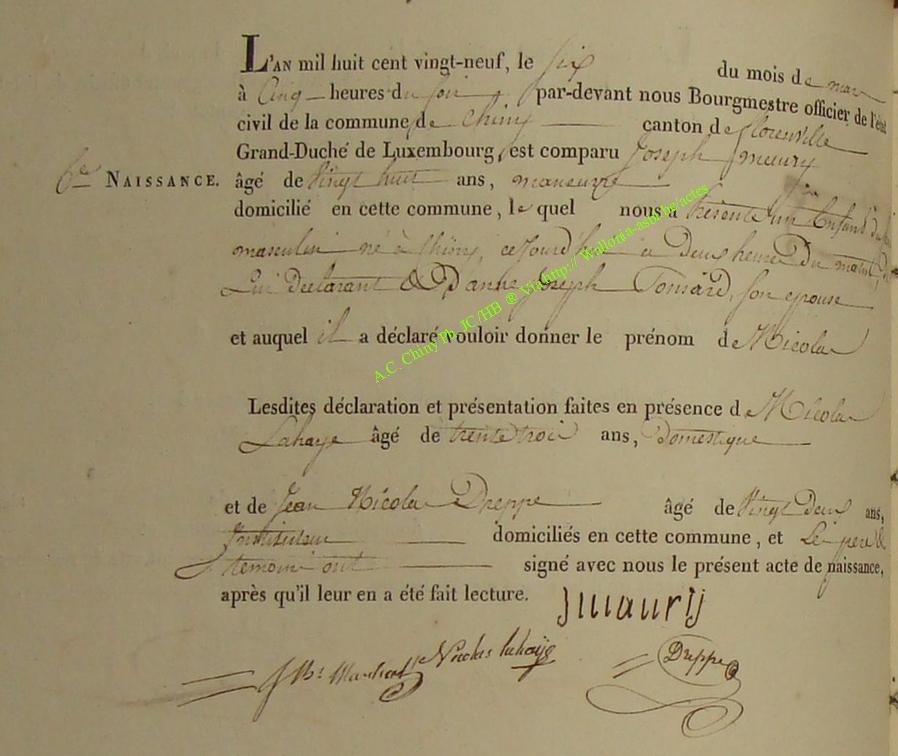 L'AN mil huit cent vingt-neuf, le six du mois de mars
à Cinq heures du soir, par-devant nous Bourgmestre officier de l'état
civil de la commune de Chiny canton de florenville
Grand-Duché de Luxembourg, est comparu Joseph
6me NAISSANCE. âgé de Vingt huit ans, manœuvre
domicilié en cette commune, le quel nous a présenté un Enfant du
masculin né à Chiny, cejourd'hui a Deux heures Du matin, de
Lui Declarant & D'anne Joseph Tonsard, son epouse
et auquel il a déclaré vouloir donner le prénom de Nicolas
Lesdites déclaration et présentation faites en présence de Nicolas
Lahaye âgé de trente trois ans, Domestique
et de Jean Nicolas Dreppe âgé de Vingt Deux ans,
Instituteur domiciliés en cette commune, et Le pere &
temoins ont signé avec nous le présent acte de naissance,
après qu'il leur en a été fait lecture.
Jmaurij
Nicolas lahaije
Dreppe
A.C. Chiny Ph. JC/HB ® Via http://Wallonia-asbl.be/actes